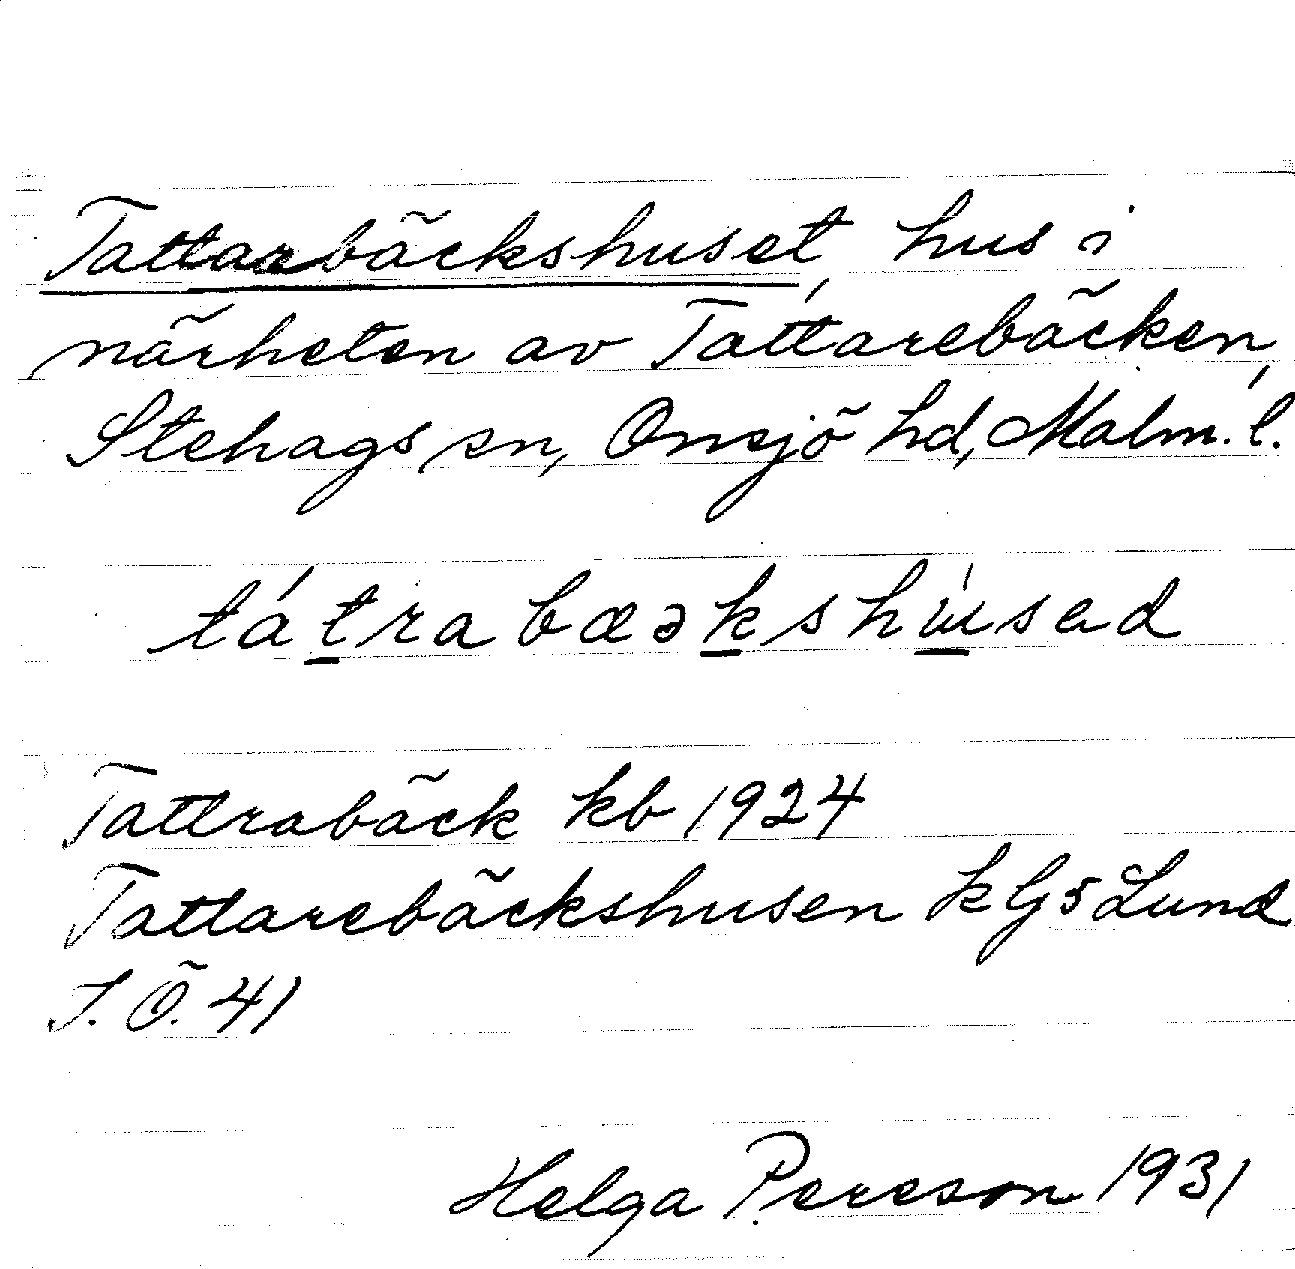 Tattarbäckshuset, hus i
närheten av Tattarebäcken,
Stehags sn, Onsjö hd, Malm. l.
tátrabæəkshúsad
Tattrabäck kb 1924
Tattarebäckshusen k G5 Lund
S. Ö. 41
Helga Persson 1931